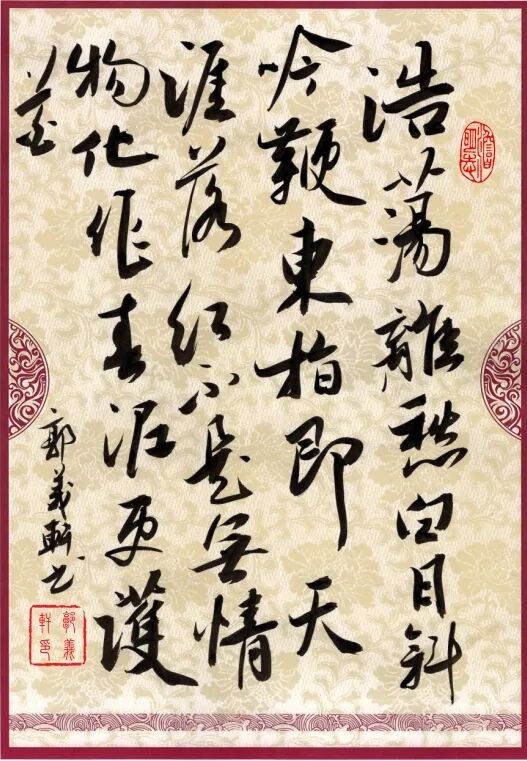 浩蕩離愁白日斜
吟鞭東指即天
涯落紅不是無情
物化作春泥更護
花
郭義軒书
郭義軒印